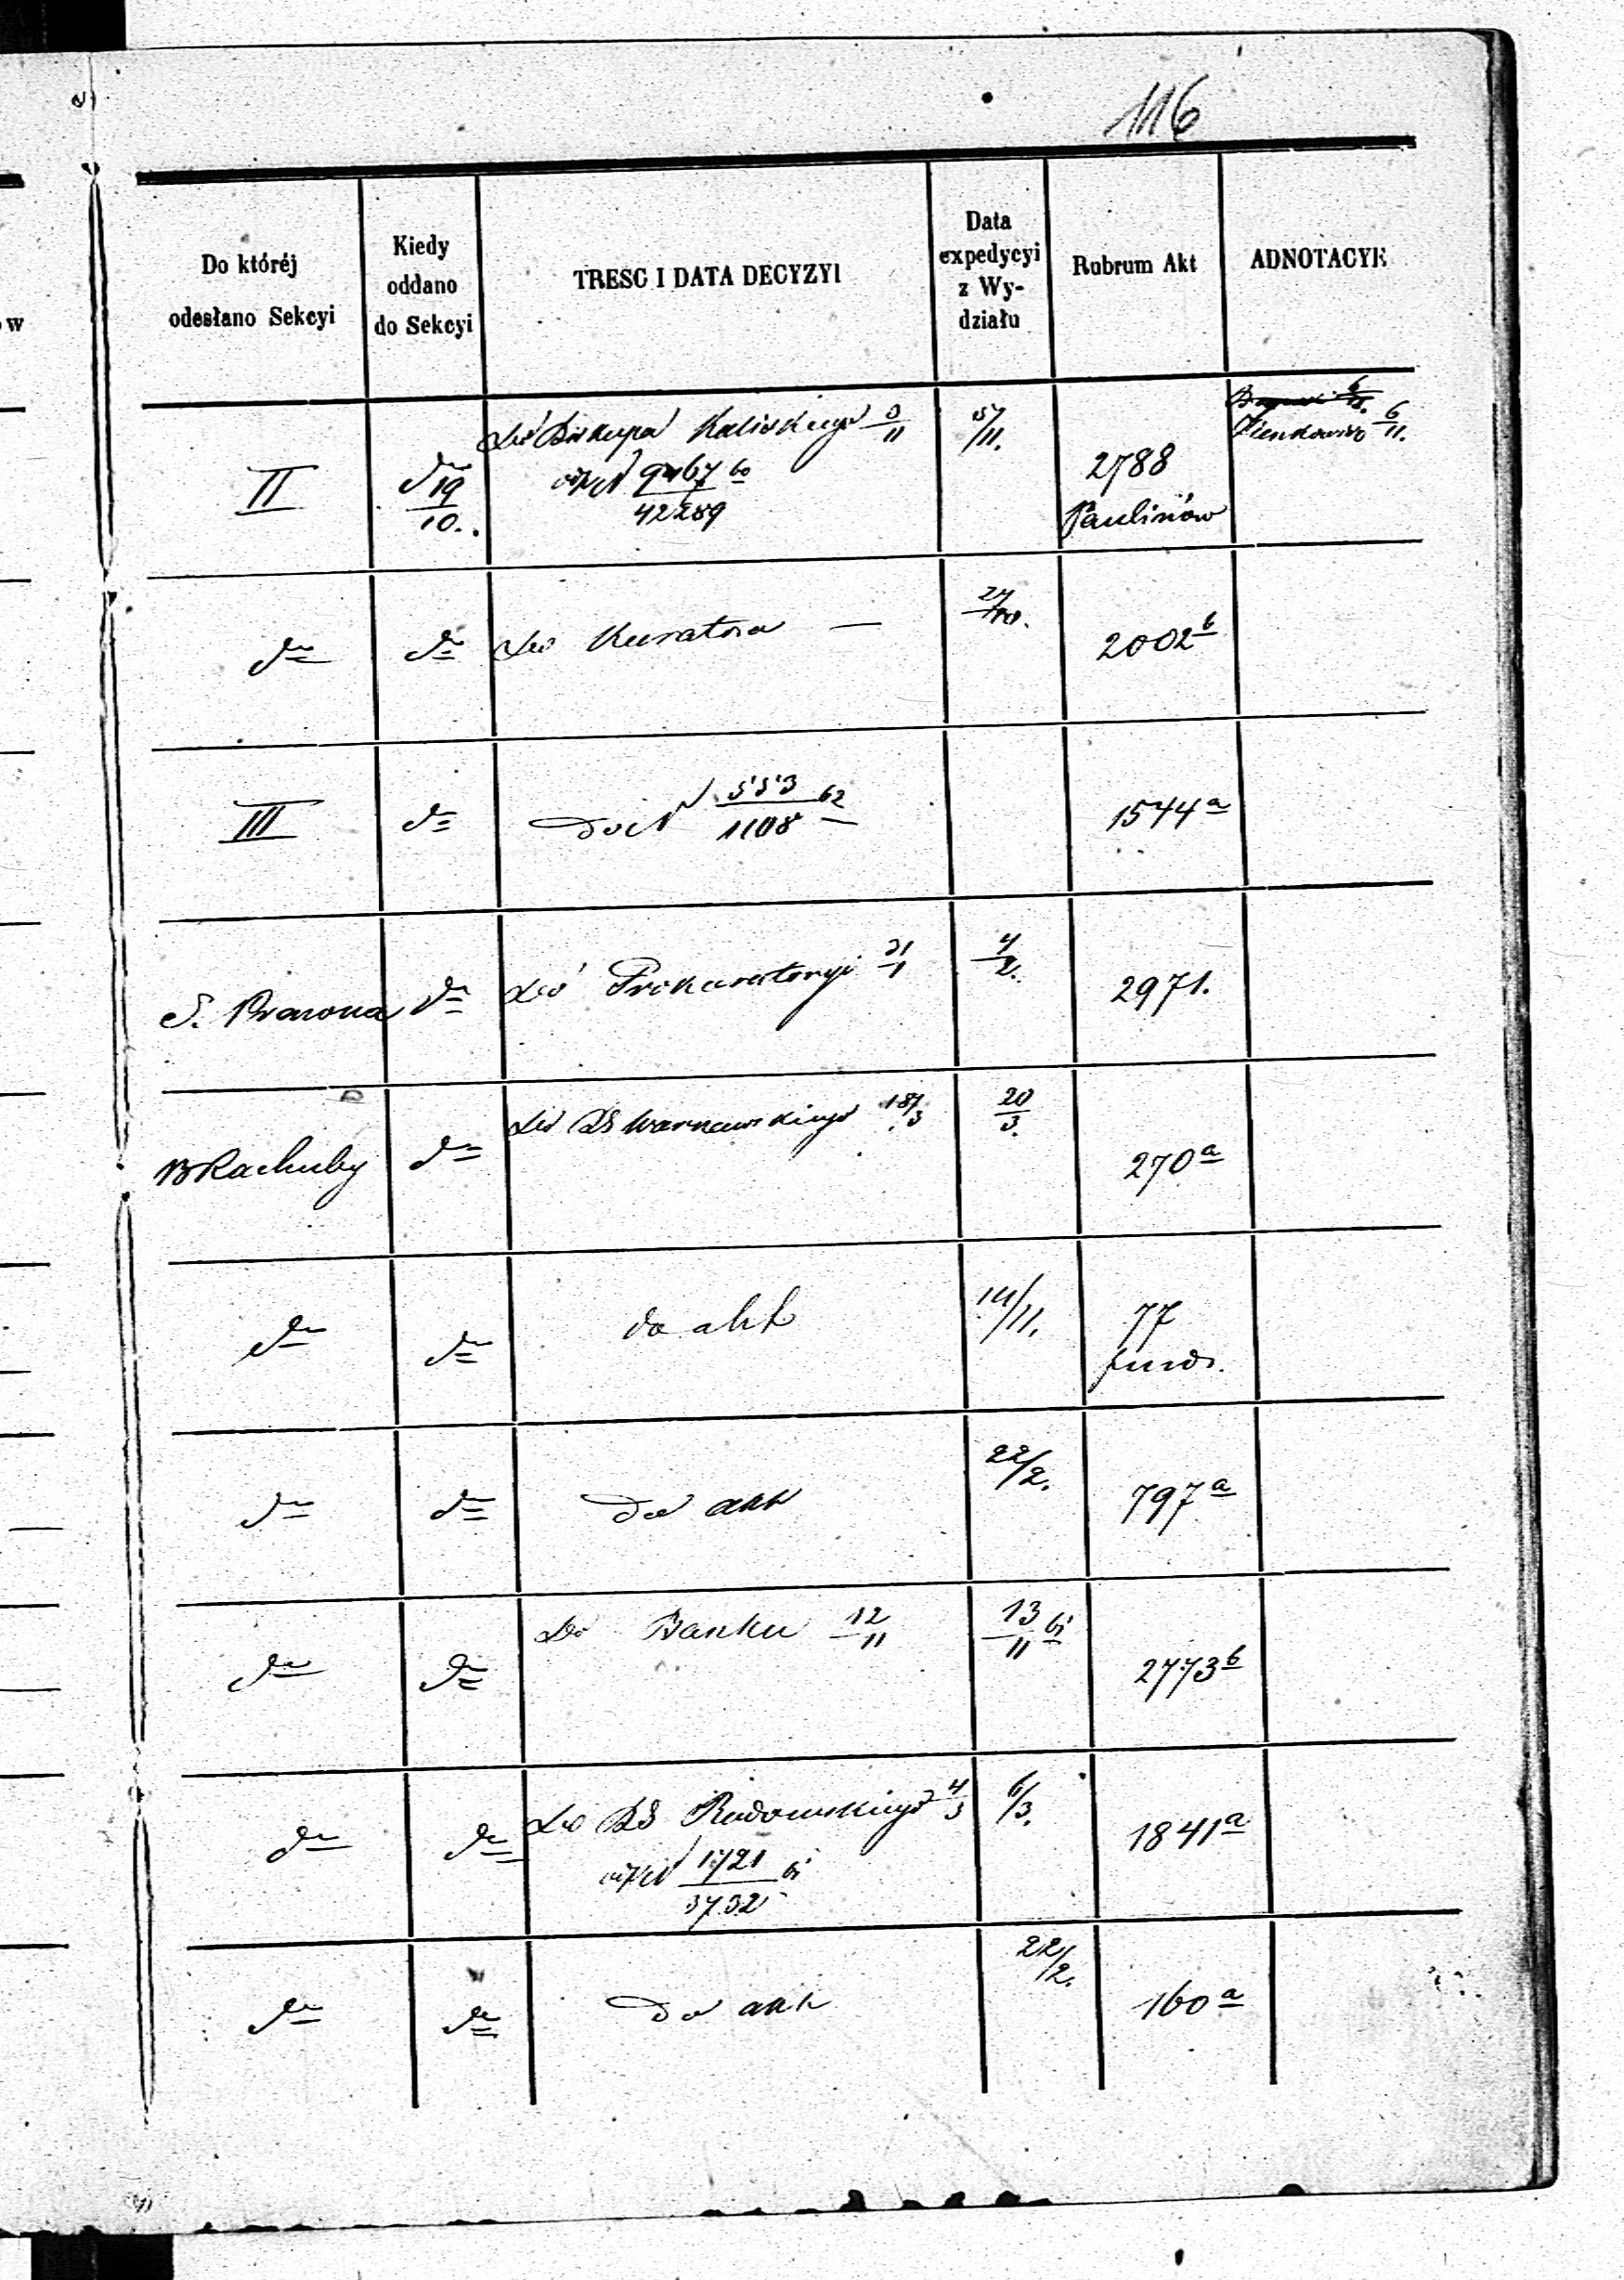 116
Do któréj
odesłano Sekcyi
Kiedy
oddano
do Sekcyi
TRESC I DATA DECYZYI
Data
expedycyi
z Wy-
działu
Rubrum Akt
ADNOTACYE
II
dn 19/10.
Do Biskupa Kaliskiego 5/11
/11.
2788
Paulinów
6/11.
dto
dto
Do Kuratora —
27/10.
2002 b
III
dto
Do N 553/1108 62
1544 a
S. Prawna
dto
Do Prokuratoryi 31/1
4/2.
2971.
B Rachuby
dto
Do RG Warszawskiego
20/3.
270 a
dto
dto
do akt
14/11.
77
fund.
dto
dto
Do akt
22/2.
797 a
dto
dto
Do Banku 12/11
13/11 61
2773 b
dto
dto
Do RG Radomskiego 4/3
N 1721/3732 61
6/3.
1841 a
dto
dto
Do akt
22/2.
160 a